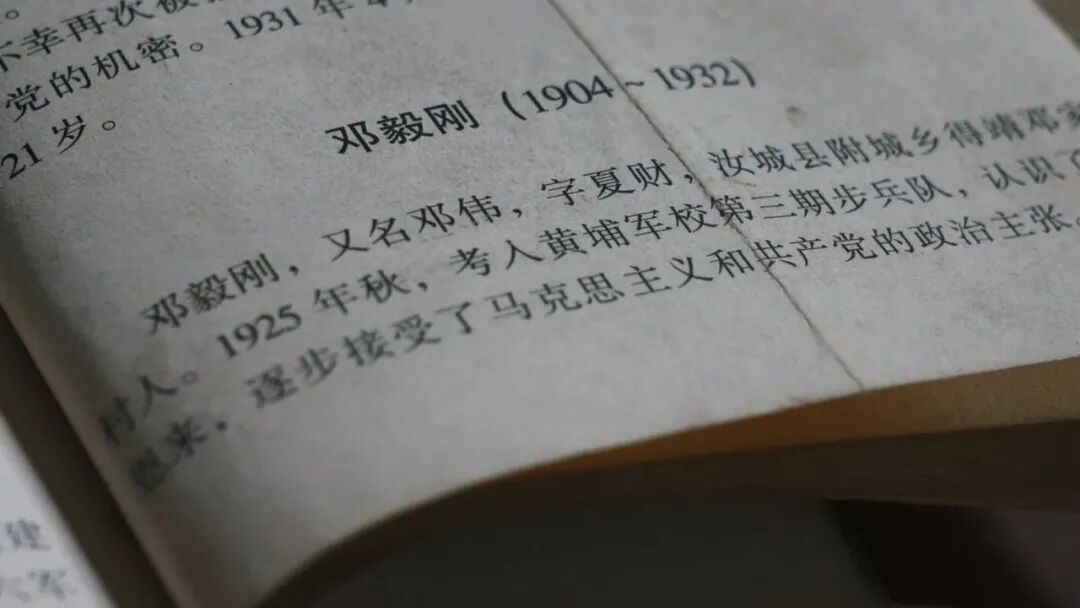 不幸再次被
党的机密。1931年4
21岁。
邓毅刚（1904～1932）
邓毅刚，又名邓伟，字夏财，汝城县附城乡得靖邓家
村人。1925年秋，考入黄埔军校第三期步兵队，认识了
恩来，逐步接受了马克思主义和共产党的政治主张。
建
六军